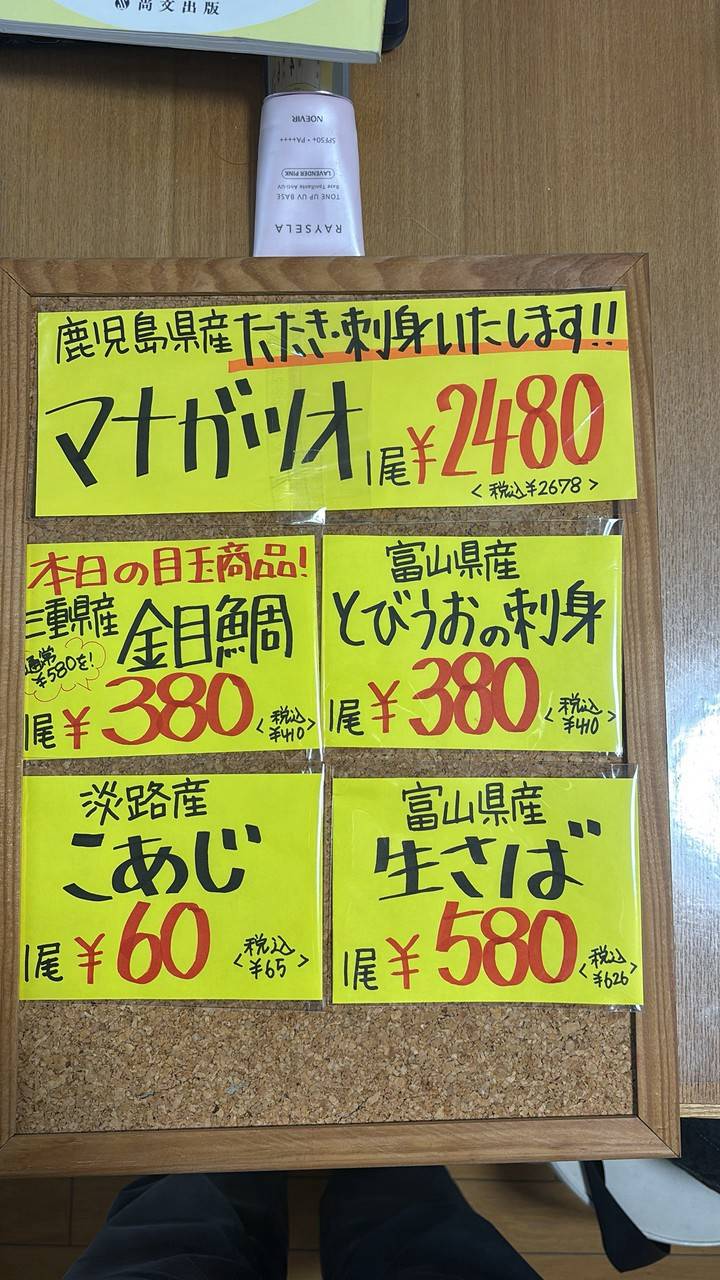 尚文出版
NOEVIR
SPF50+・PA++++
LAVENDER PINK
Base Tonifiante Anti-UV
TONE UP UV BASE
RAYSELA
鹿児島県産たたき・刺身いたします!!
マナガツオ 1尾¥2480
<税込¥2678>
本日の目玉商品!
三重県産 金目鯛
通常¥580を!
1尾¥380 <税込¥410>
富山県産
とびうおの刺身
1尾¥380 <税込¥410>
淡路産
こあじ
1尾¥60 <税込¥65>
富山県産
生さば
1尾¥580 <税込¥626>